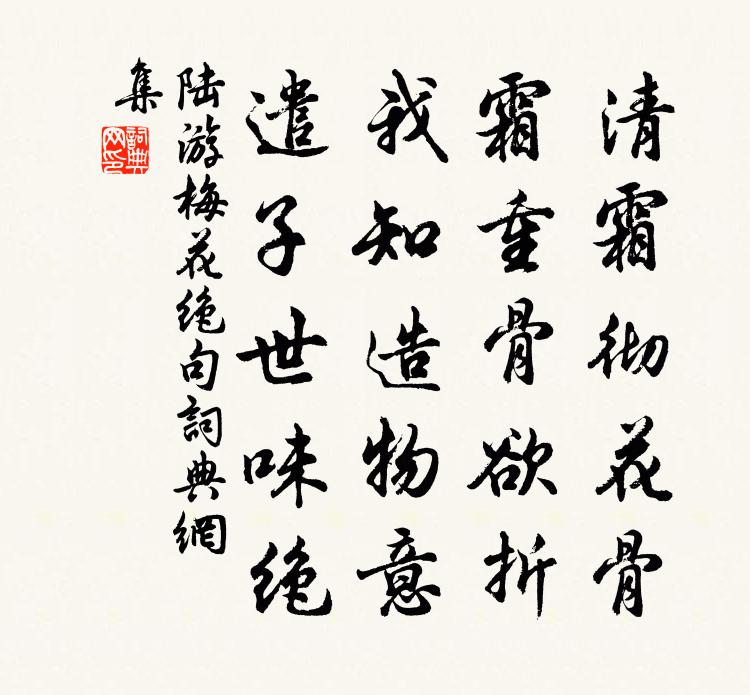 清霜彻花骨
霜重骨欲折
我知造物意
遣子世味绝
陆游梅花绝句詞典網
集
詞典
网印